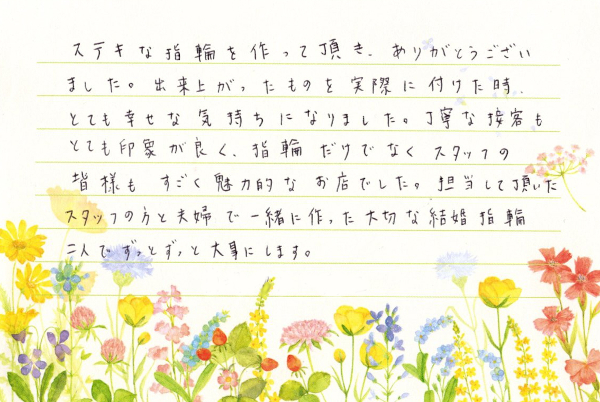 ステキな指輪を作って頂き、ありがとうござい
ました。出来上がったものを実際に付けた時、
とても幸せな気持ちになりました。丁寧な接客も
とても印象が良く、指輪だけでなくスタッフの
皆様もすごく魅力的なお店でした。担当して頂いた
スタッフの方と夫婦で一緒に作った大切な結婚指輪
二人でずっとずっと大事にします。